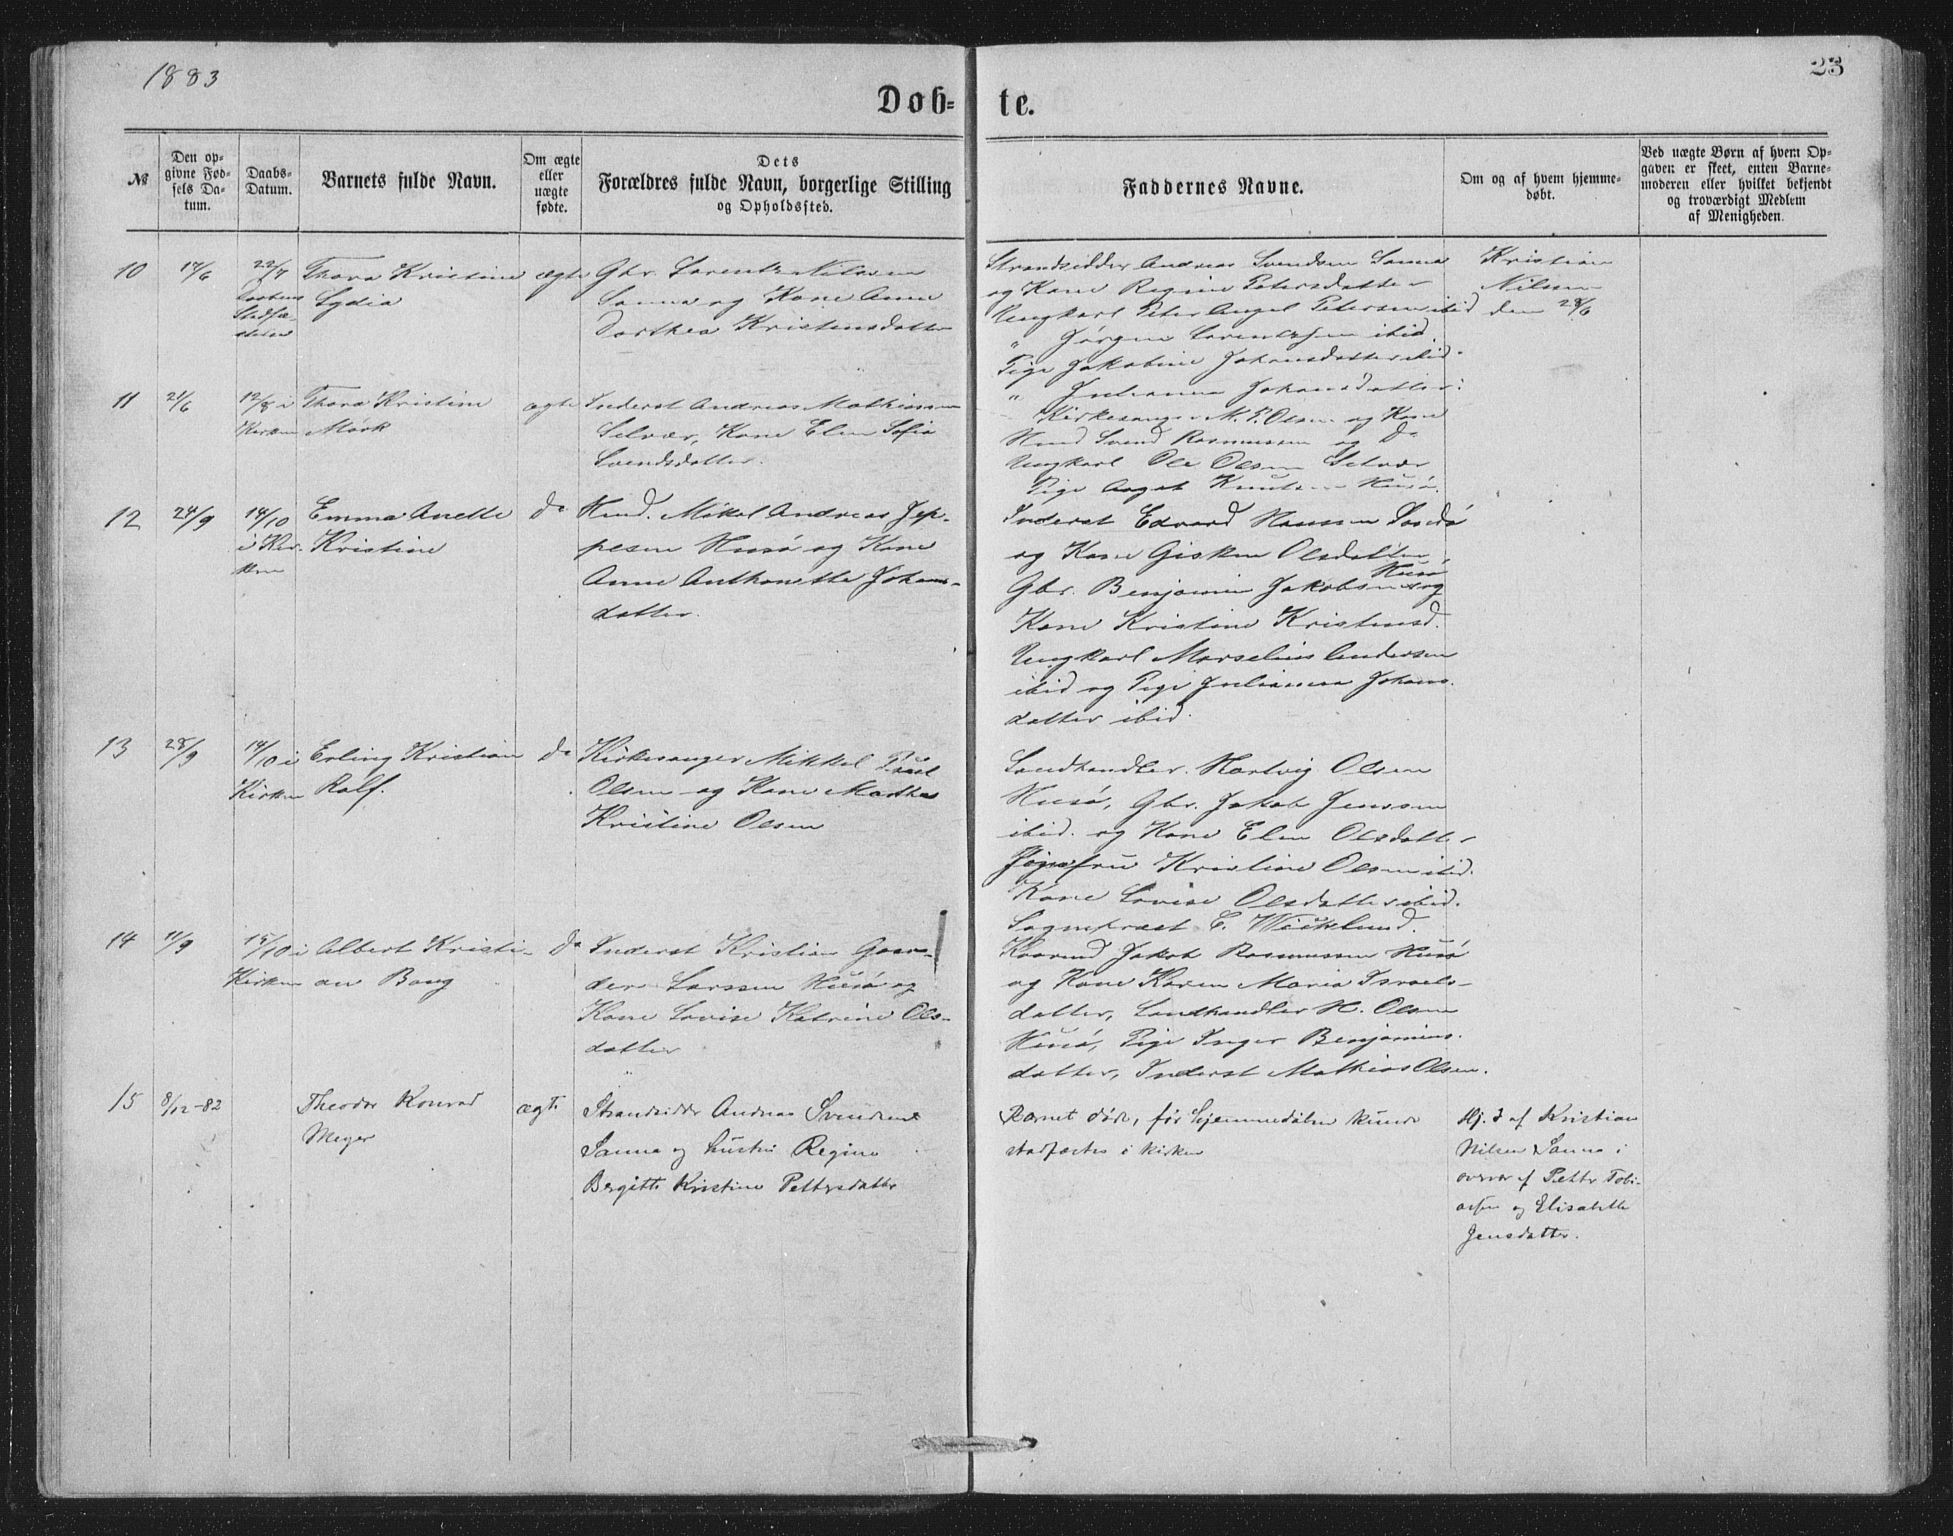 1883
23
Døb-
te.
№
Den op-
givne Fød-
sels Da-
tum.
Daabs-
Datum.
Barnets fulde Navn.
Om ægte
eller
uægte
fødte.
Dets
Forældres fulde Navn, borgerlige Stilling
og Opholdssted.
Faddernes Navne.
Om og af hvem hjemme-
døbt.
Ved uægte Børn af hvem Op-
gaven er skeet, enten Barne-
moderen eller hvilket bekjendt
og troværdigt Medlem
af Menigheden.
10
17/6
22/7
Daabens
Stadfæ-
stelse
Thora Kristine
Lydia
ægte
Gbr. Lorentz Nilssen
Sanna og Kone Anne
Dorthea Kristensdatter
Strandsidder Andreas Svendsen Sanna
og Kone Regine Petersdatter
Ungkarl Peter Angel Petersen ibid
" Jørgen Lorentzsen ibid
Pige Jakobine Johansdatter ibid.
" Julianna Johansdatter
Kristian
Nilsen
den 28/6
11
21/6
12/8 i
Kirken
Thora Kristine
Mørk
ægte
Inderst Andreas Mathiassen
Selvær, Kone Elen Sofia
Svendsdatter.
Kirkesanger M. P. Olsen og Kone
Hmd Svend Rasmussen og Do
Ungkarl Ole Olsen Selvær
Pige Knutsen Husø.
12
24/9
14/10
i Kir-
ken
Emma Anette
Kristine
do
Hmd. Mikal Andreas Jep-
pesen Husø og Kone
Anne Anthonette Johans-
datter.
Inderst Edvard Hanssen Sandø
og Kone Gisken Olsdatter,
Gbr. Benjamin Jakobsen Husø og
Kone Kristine Kristensd.
Ungkarl Marselius Andersen
ibid og Pige Julianna Johans-
datter ibid.
13
28/9
14/10 i
Kirken
Erling Kristian
Rolf.
do
Kirkesanger Mikkel Paul
Olsen og Kone Marthe
Kristine Olsen
Landhandler. Hartvig Olsen
Husø, Gbr. Jakob Jenssen
ibid. og Kone Elen Olsdatter
Jomfru Kristine Olsen ibid.
Kone Lovise Olsdatter ibid.
Sognepræst E. Wicklund.
14
11/9
15/10 i
Kirken
Albert Kristi-
an Bang
Do
Inderst Kristian Gaar-
der Larssen Husø og
Kone Lovise Katrine Ols-
datter
Kaarmd Jakob Rasmussen Husø
og Kone Karen Maria Israels-
datter, Landhandler H. Olsen
Husø, Pige Inger Benjamins-
datter, Inderst Mathias Olsen.
15
8/12-82
Theodor Konrad
Meyer
ægte
Strandsidder Andreas Svendsen
Sanna og hustru Regine
Bergitte Kristine Pettersdatter
Barnet døde, før Hjemmedåben kunde
stadfæstes i kirken
Hj. d. af Kristian
Nilsen Sanna i
overvær af Petter Tobi-
assen og Elisabeth
Jensdatter.